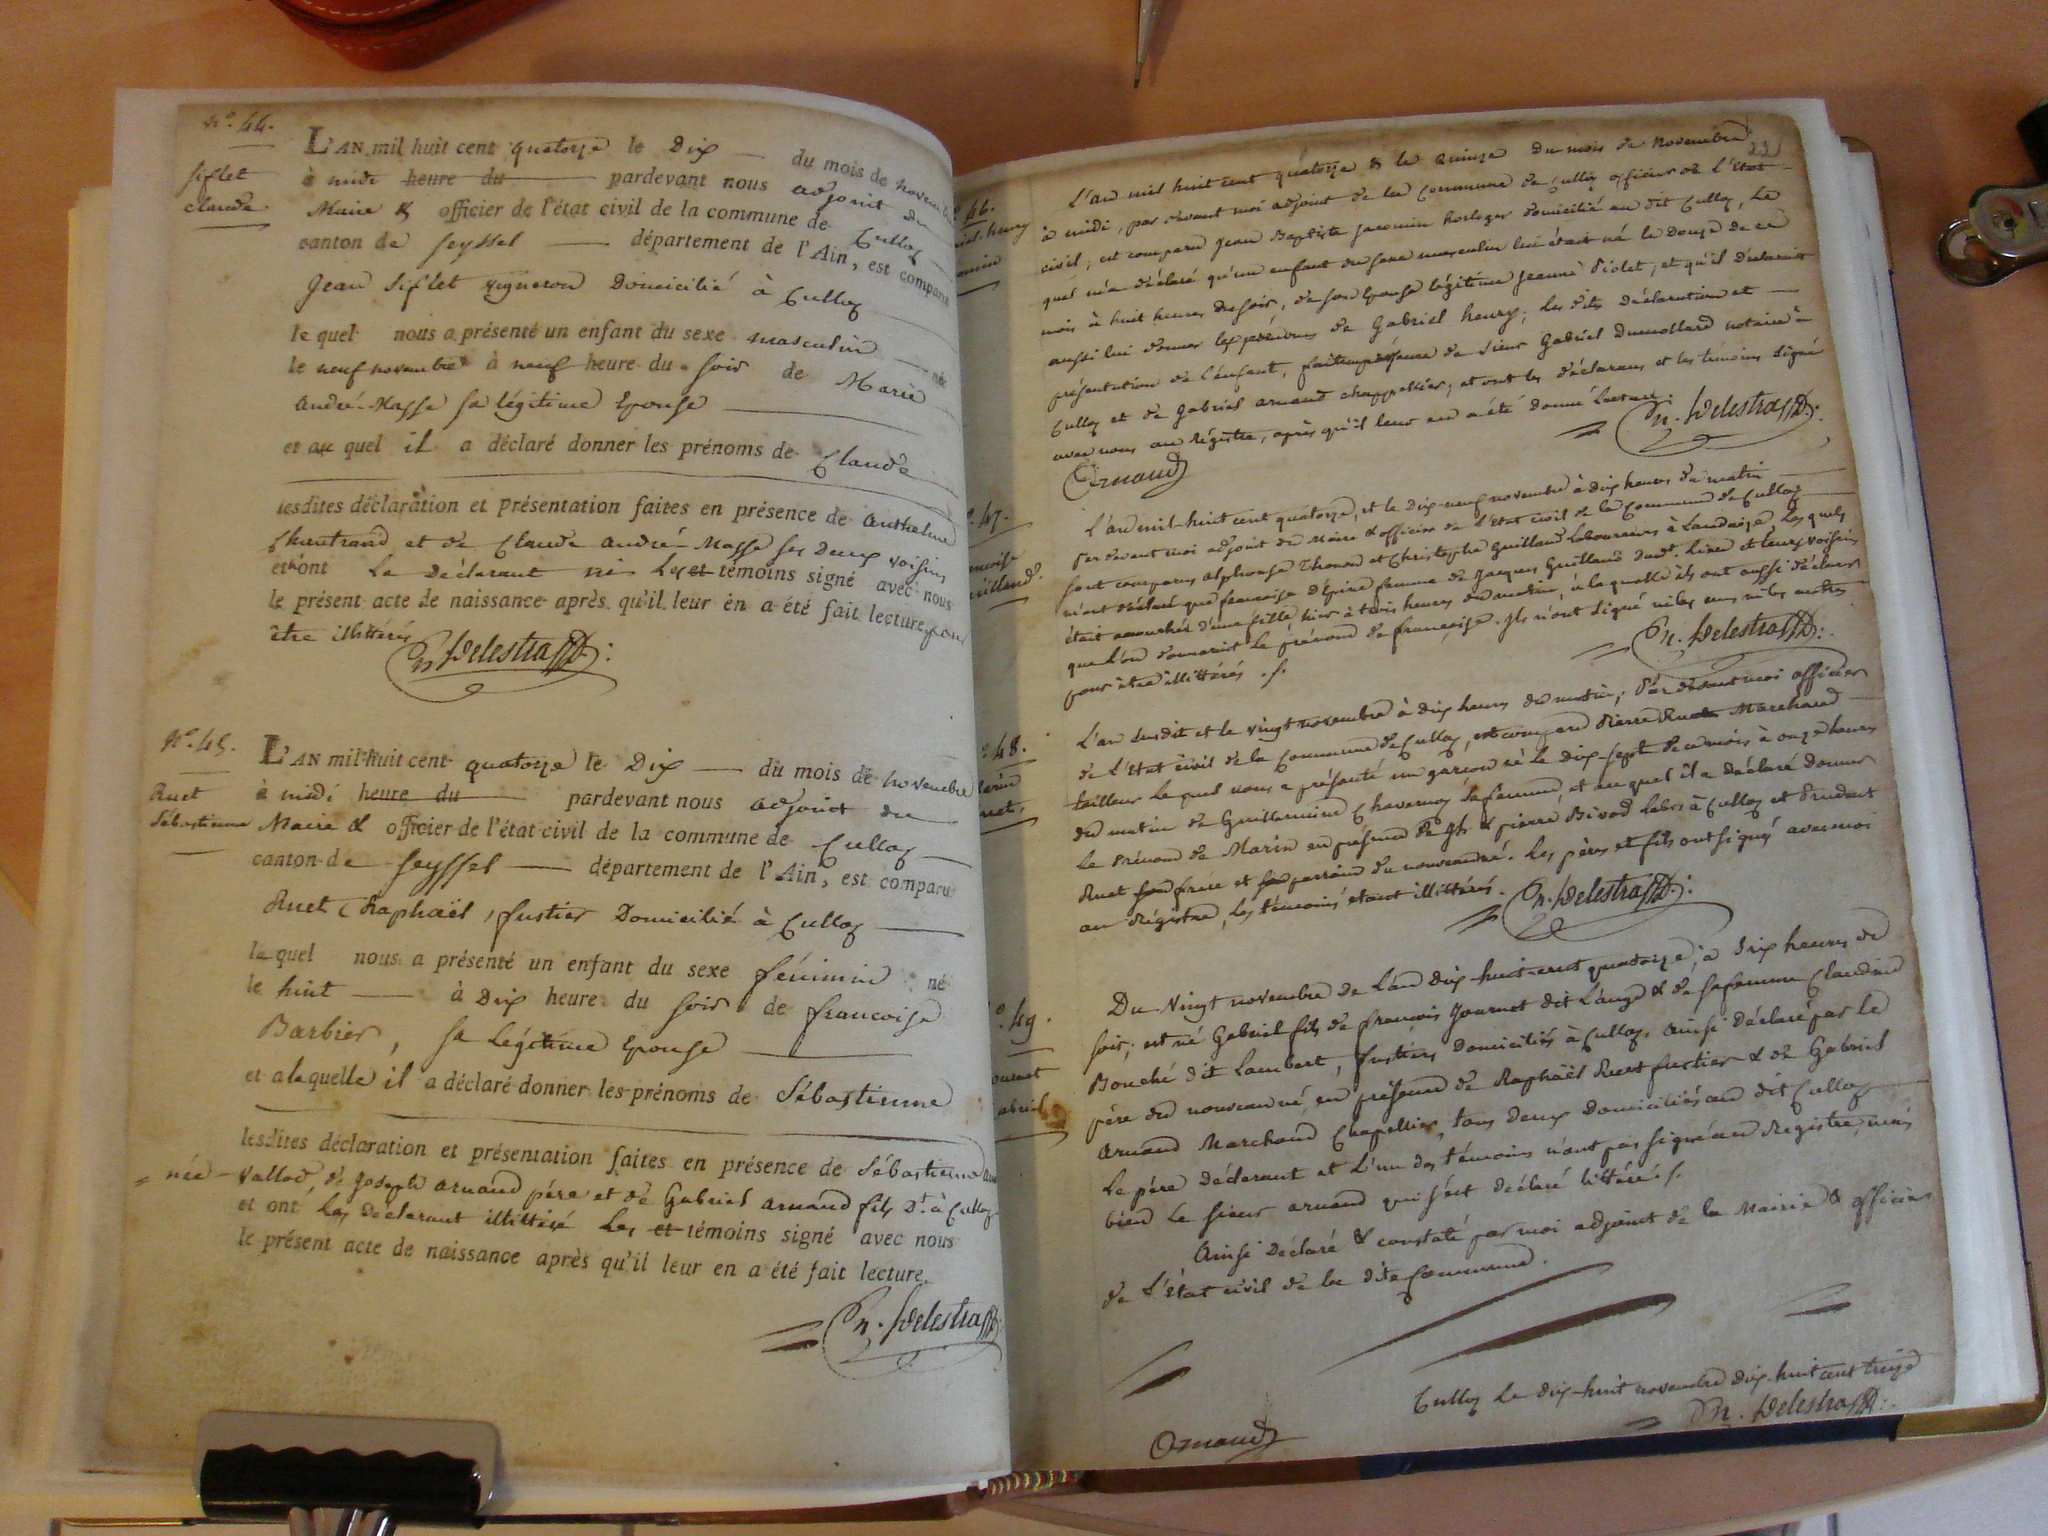 N.° 44.
Siflet
Claude
L'AN mil huit cent quatorze le Dix du mois de novembre
à midi heure du pardevant nous adjoint du
Maire & officier de l'état civil de la commune de Culloz
canton de Seyssel département de l'Ain, est comparu
Jean Siflet vigneron Domicilié à Culloz
le quel nous a présenté un enfant du sexe masculin né
le neuf novembre à neuf heure du soir de Marie
André-Masse sa légitime Epouse
et au quel il a déclaré donner les prénoms de Claude
lesdites déclaration et présentation faites en présence de Anthelme
Chantrand et de Claude André-Masse ses Deux voisins
et ont Le Déclarant ni Les et témoins signé avec nous
le présent acte de naissance après qu'il leur en a été fait lecture, pour
être illittérés
N. Delestra
N.° 45.
Ruet
Sébastienne
L'AN mil-huit cent quatorze le Dix du mois de novembre
à midi heure du pardevant nous adjoint du
Maire & officier de l'état civil de la commune de Culloz
canton de Seyssel département de l'Ain, est comparu
Ruet Raphaël, fustier Domicilié à Culloz
le quel nous a présenté un enfant du sexe féminin né
le huit à Dix heure du soir de francoise
Barbier, sa Légitime Epouse
et a laquelle il a déclaré donner les prénoms de Sébastienne
lesdites déclaration et présentation faites en présence de Sébastienne
= née Vallod, de Joseph arnaud père et de Gabriel arnaud fils D.t à Culloz
et ont Les Déclarant illittéré Les et témoins signé avec nous
le présent acte de naissance après qu'il leur en a été fait lecture.
N. Delestra
46.
henry
L'an mil huit cent quatorze & le quinze du mois de novembre
à midi, par devant moi adjoint de la Commune de Culloz officier de l'Etat
civil, est comparu Jean Baptiste Jacomin horloger domicilié au dit Culloz, Le
quel m'a déclaré qu'un enfant du sexe masculin lui était né le Douze de ce
mois à huit heures du soir, de son Epouse légitime Jeanne Piolet, et qu'il Désirait
aussi lui donner les prénoms de Gabriel henry; les dites déclaration et
présentation de l'enfant, faites en présence de Sieur Gabriel Dumollard notaire à
Culloz et de Gabriel arnaud chappellier; et ont les déclarans et les témoins Signé
avec nous au Régistre, après qu'il leur en a été donné Lecture.
N. Delestra
Arnaud
47.
L'an mil huit cent quatorze, et le Dix neuf novembre à dix heures du matin
Par devant moi adjoint du Maire & officier de l'Etat civil de la Commune de Culloz
sont comparus alphonse Thonon et Christophe Guilland Laboureurs à Landaize, Les quels
m'ont déclaré que francoise d'Epine femme de Jacques Guilland dud.t Lieu et leurs voisins
était accouchée d'une fille, hier à trois heures du matin, à laquelle ils ont aussi déclaré
que l'on donnerait le prénom de francoise. ils n'ont Signé ni les uns ni les autres
pour être illittérés ./.
N. Delestra
48.
L'an susdit et le vingt novembre à dix heures du matin; Par devant moi officier
de l'Etat civil de la Commune de Culloz, est comparu Pierre Ruet Marchand
tailleur Le quel nous a présenté un garçon né le dix sept de ce mois à onze heures
du matin de Guillermine Chavernoy Sa femme, et au quel il a Déclaré donner
Le Prénom de Marin en présence de & pierre Bivod Labrs à Culloz et Prudent
Ruet son frère et son parrain du nouveau né. Les père et fils ont signé avec moi
au Régistre, Les témoins étant illittérés.
N. Delestra
49.
Du Vingt novembre de L'an Dix-huit-cent quatorze, à Dix heures du
soir, est né Gabriel fils de francois Journet dit L'ange & de sa femme Claudine
Bouché dit Lambert, fustiers Domiciliés à Culloz, Ainsi Déclaré par le
père du nouveau né, en présence de Raphaël Ruet fustier & de Gabriel
Arnaud Marchand Chapellier, tous Deux Domiciliés au dit Culloz
Le père Déclarant et L'un des témoins n'ont pas signé au Registre, mais
bien Le sieur arnaud qui s'est déclaré littéré ./.
Ainsi Déclaré & constaté par moi adjoint de la Mairie & officier
de l'Etat civil de la dite Commune.
Culloz Le dix-huit novembre Dix-huit cent treize
N. Delestra
Arnaud